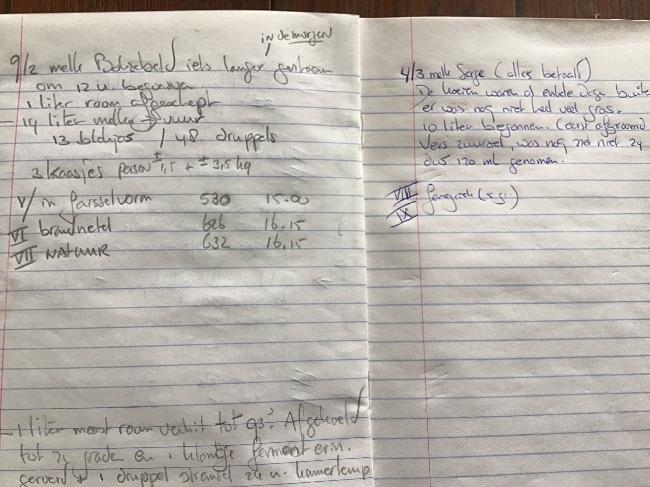 in de morgen
9/2 melk iets langer gestaan
om 12 u begonnen
1 liter room afgeschept
14 liter melk
13 / 48 druppels
3 kaasjes 1,5 + ± 3,5 kg
V/ in 530 15.00
VI brandnetel 626 16.15
VII NATUUR 632 16.15
1 liter room verhit tot 93° Afgekoeld
tot graden en 1 klontje ferment erin.
geroerd + 1 druppel stremsel 24 u. kamertemp
4/3 melk (alles betaald)
De koeien waren al enkele dagen buiten
er was nog niet heel veel gras.
10 liter begonnen. (eerst afgeroomd)
Vers zuursel, was nog niet 24
dus 120 ml genomen.
VIII fenegriek (5 gr.)
IX